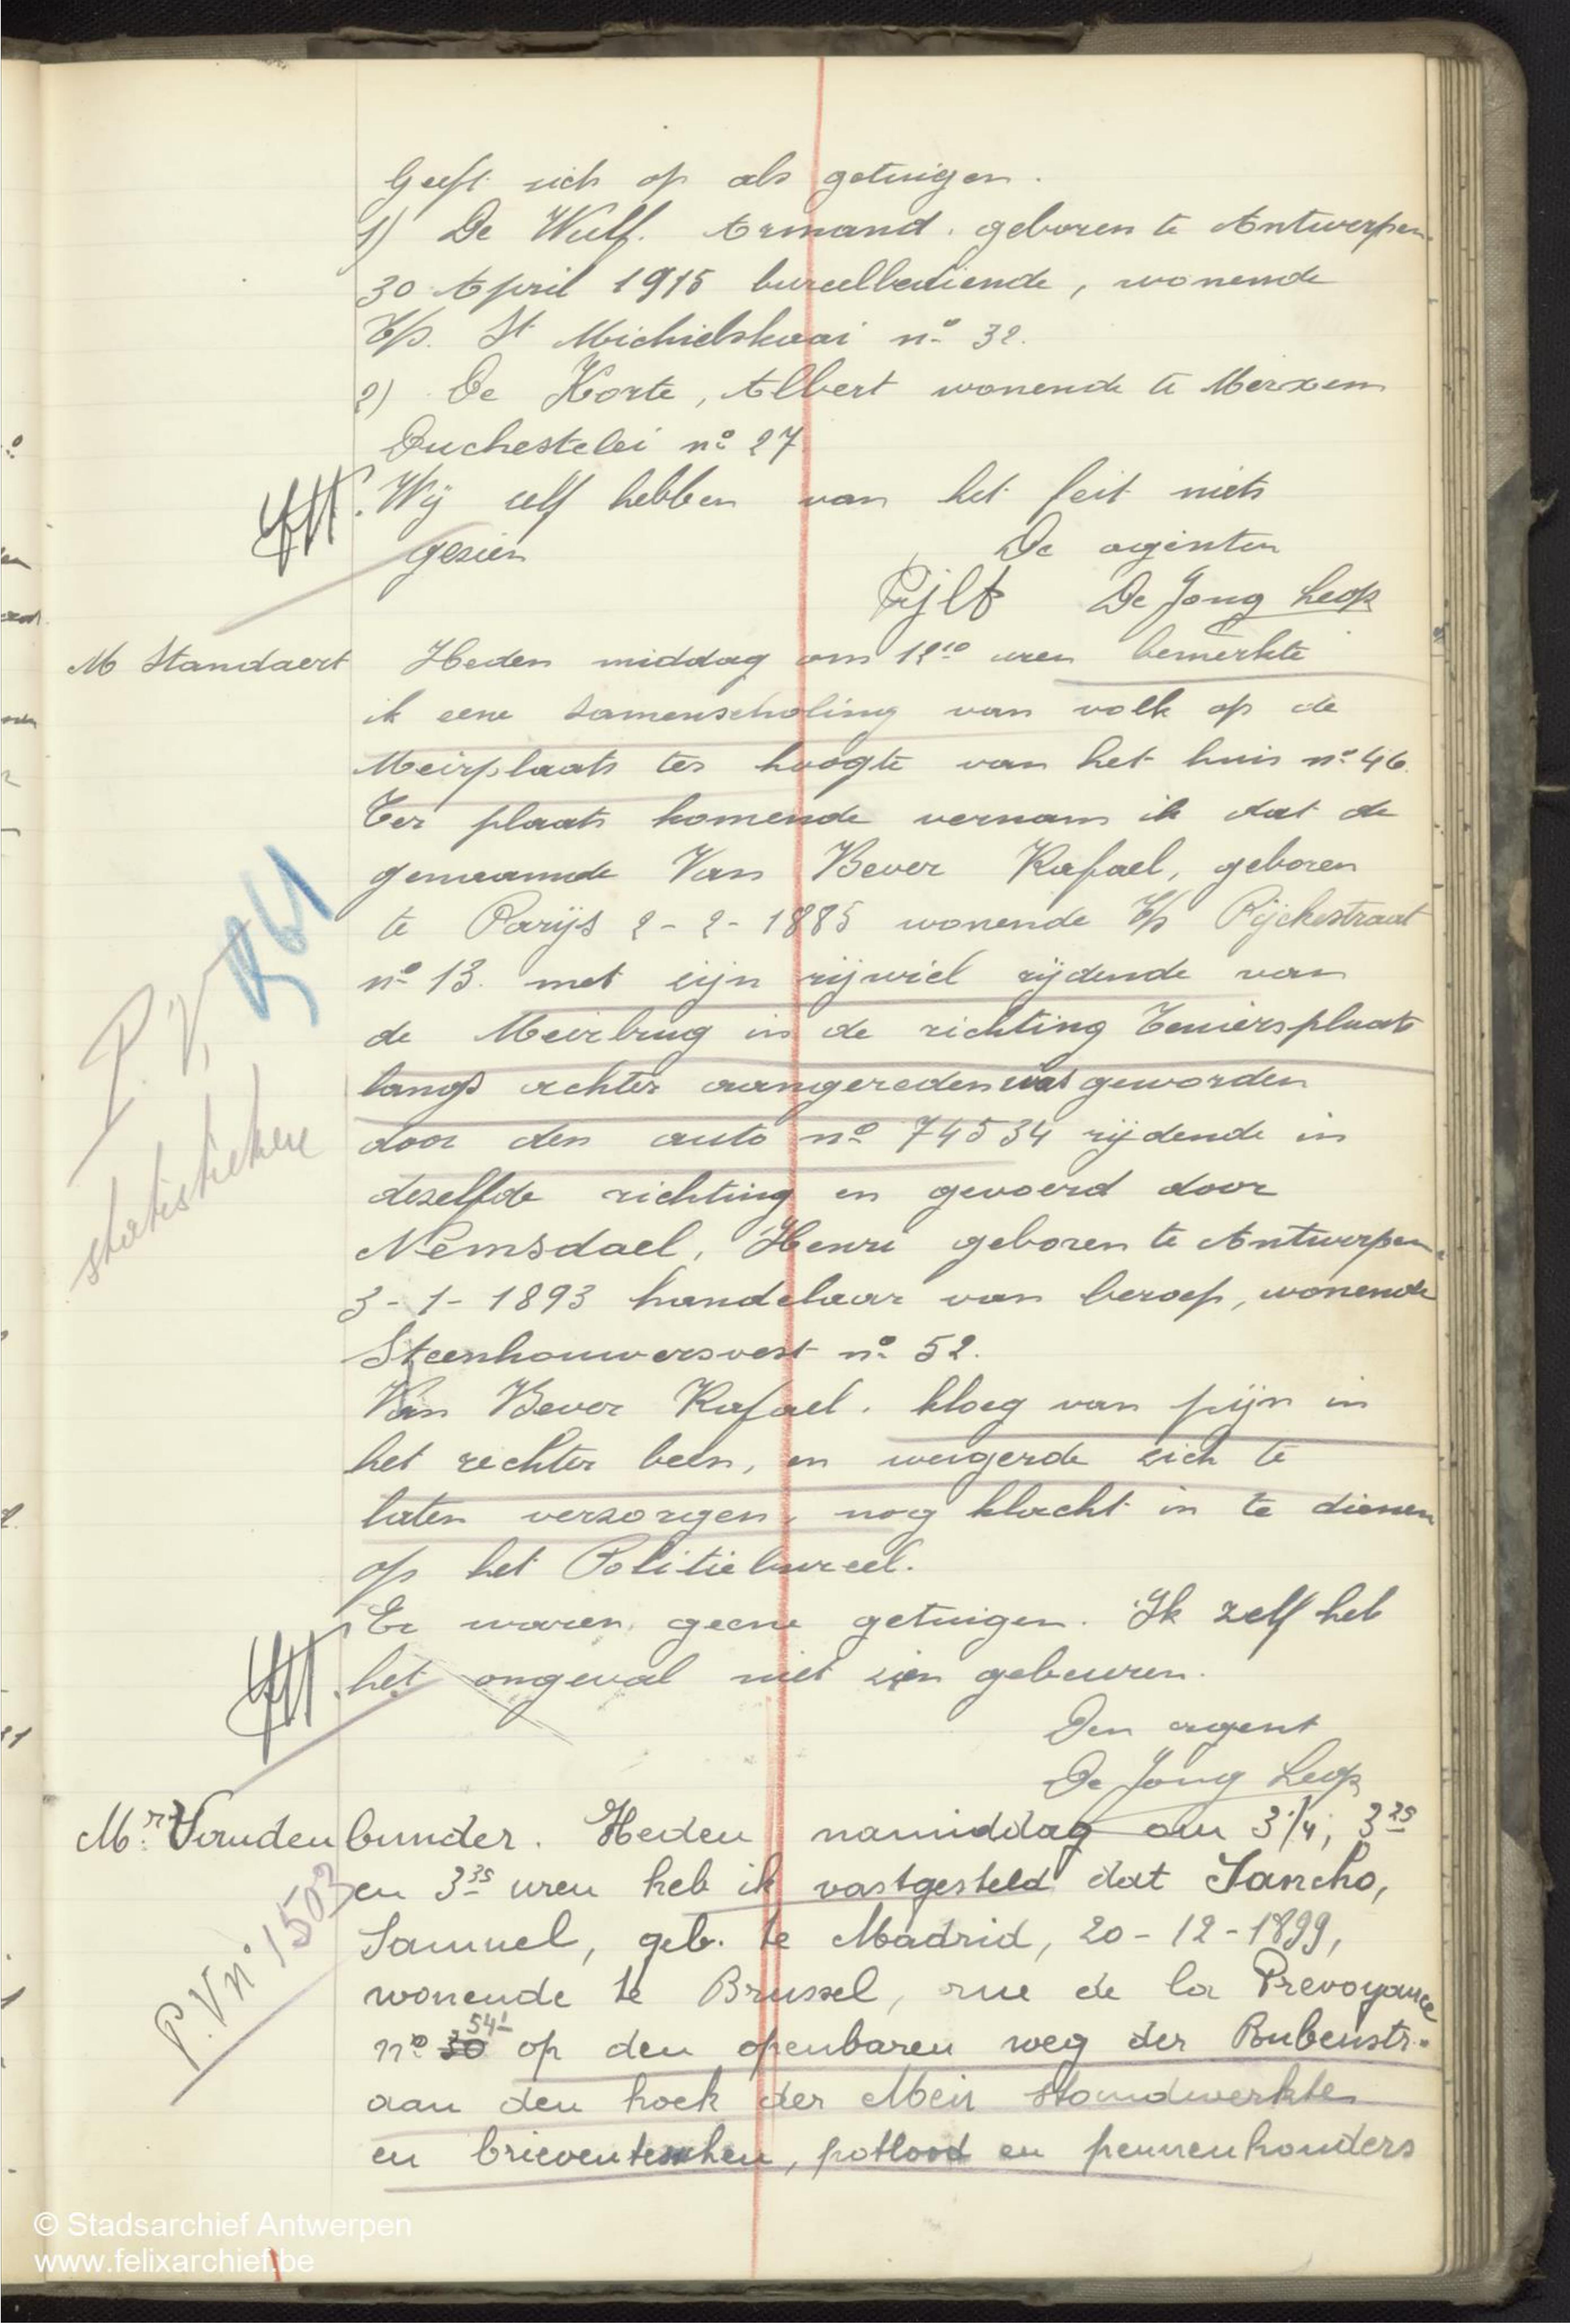 Geeft zich op als getuigen.
1) De Wulf. Armand. geboren te Antwerpen
30 April 1915 bureelbediende, wonende
t/s. St Michielskaai nº 32.
2) De Korte, Albert wonende te Merxem
Duchestelei nº 27
Wij zelf hebben van het feit niets
gezien De agenten
De Jong Leop
M Standaert Heden middag om 12¹⁰ uren bemerkte
ik eene samenscholing van volk op de
Meirplaats ter hoogte van het huis nº 46.
Ter plaats komende vernam ik dat de
genaamde Van Bever Rafael, geboren
te Parijs 2-2-1885 wonende t/s Rijckestraat
nº 13. met zijn rijwiel rijdende van
de Meirbrug in de richting Teniersplaats
langs achter aangereden was geworden
door den auto nº 74534 rijdende in
dezelfde richting en gevoerd door
Nemsdael, Henri geboren te Antwerpen
3-1-1893 handelaar van beroep, wonende
Steenhouwersvest nº 52.
Van Bever Rafael. kloeg van pijn in
het rechter been, en weigerde zich te
laten verzorgen, nog klacht in te dienen
op het Politiebureel.
Er waren geene getuigen. Ik zelf heb
het ongeval niet zien gebeuren.
Den agent
De Jong Leop
P.V. 561
statistieken
Mr. Vandenbunder. Heden namiddag om 3 1/4, 3²⁵
en 3³⁵ uren heb ik vastgesteld dat Sancho,
Samuel, geb. te Madrid, 20-12-1899,
wonende te Brussel, rue de la Prevoyance
nº 30 54 op den openbaren weg der Rubenstr.
aan den hoek der Meir standwerkte
en brieventesschen, potlood en pennenhouders
P.V. nº 1503
© Stadsarchief Antwerpen
www.felixarchief.be